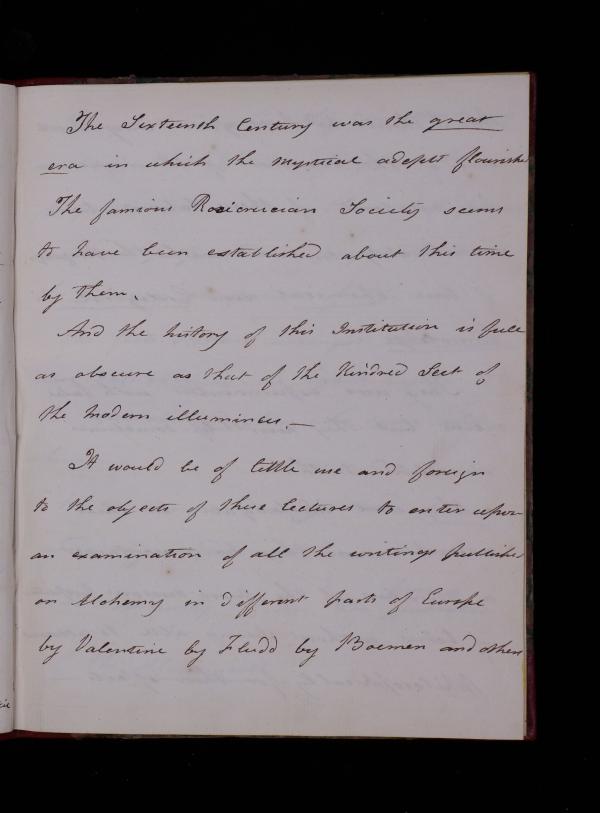 The Sixteenth Century was the great
era in which the mystical adepts flourishe
The famous Rosicrucian Society seems
to have been established about this time
by them.
And the history of this Institution is full
as obscure as that of the Kindred Sect of
the modern illuminees.—
It would be of little use and foreign
to the objects of these lectures to enter upon
an examination of all the writings publishe
on Alchemy in different parts of Europe
by Valentine by Fludd by Boemen and others